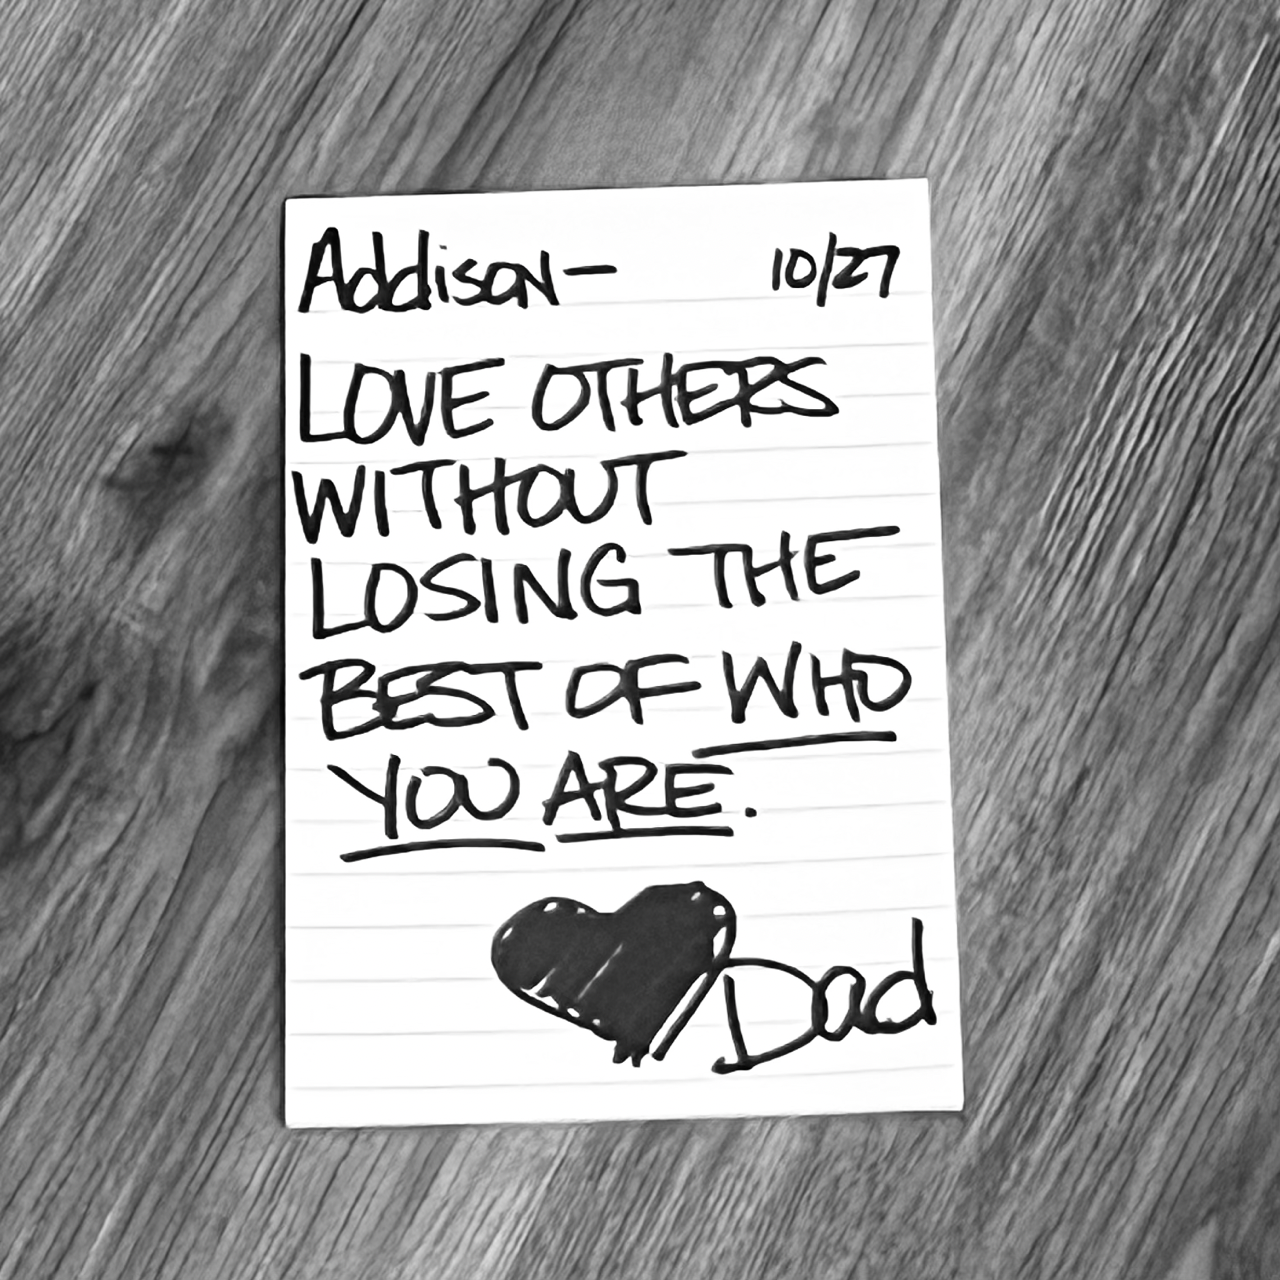 Addison— 10/27
LOVE OTHERS
WITHOUT
LOSING THE
BEST OF WHO
YOU ARE.
Dad